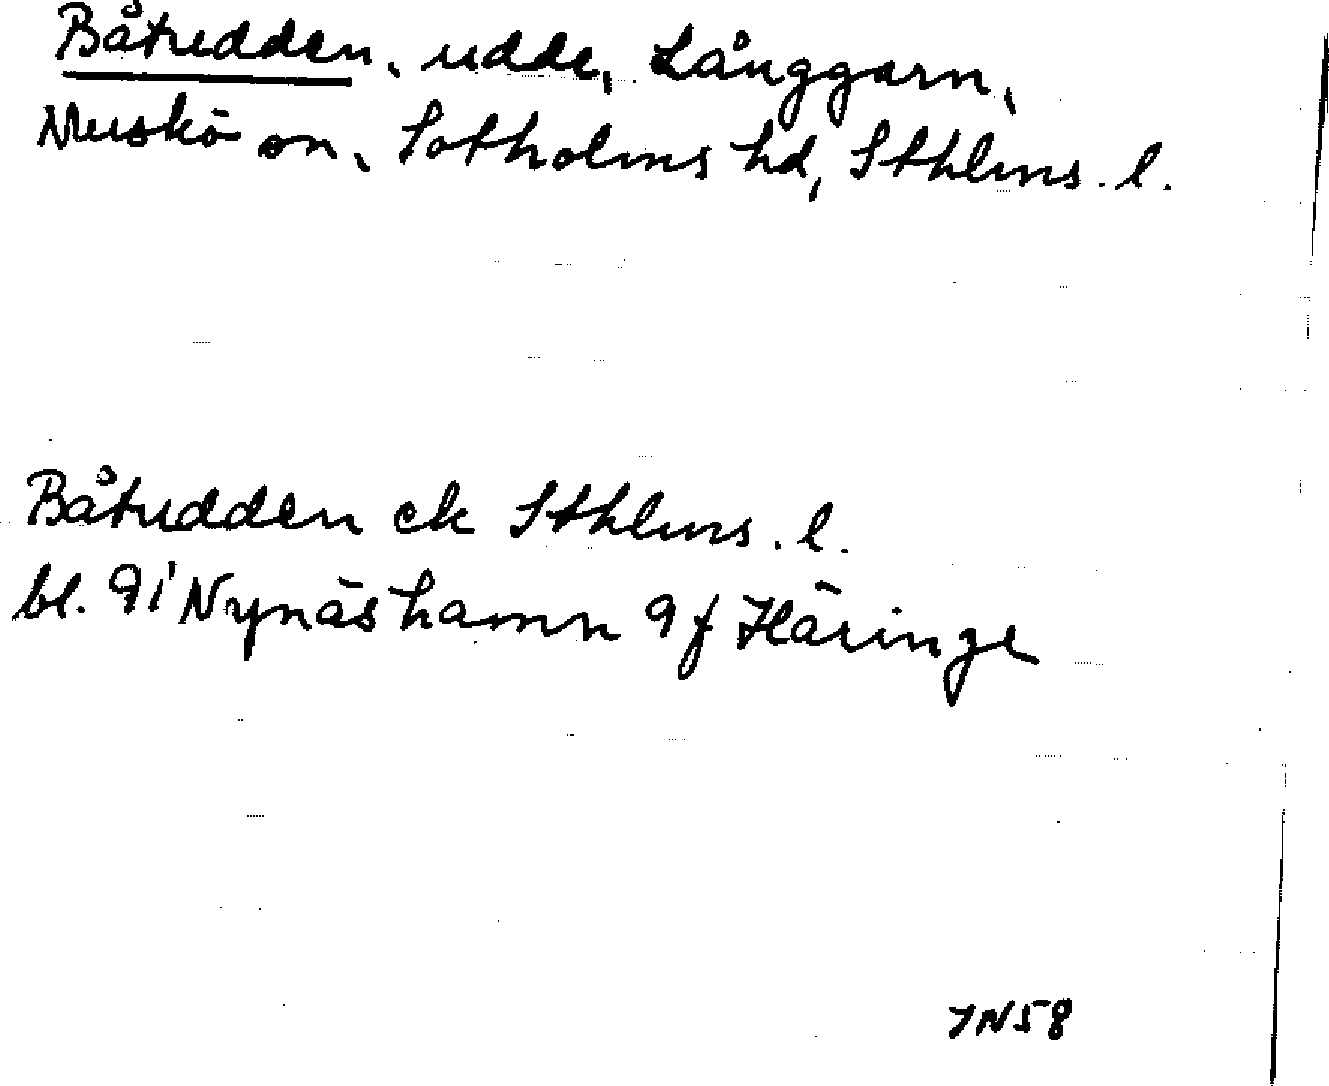 Båtudden, udde, Långgarn,
Muskö sn, Sotholms hd, Sthlms. l.
Båtudden ek Sthlms. l.
bl. 9 i Nynäshamn 9 f Häringe
IN58